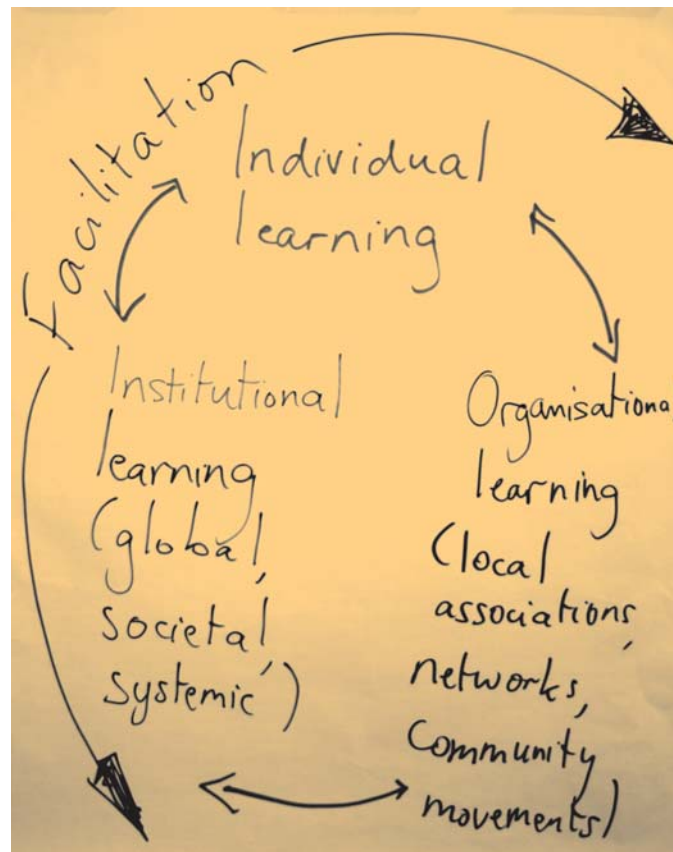 Facilitation
Individual
learning
Institutional
learning
(global,
societal,
systemic)
Organisational
learning
(local
associations,
networks,
community
movements)